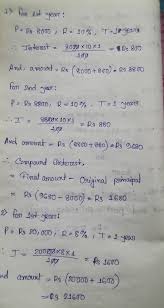 1) For 1st year:
P = Rs 8000, R = 10%, T = 1 year
∴ Interest = 8000×10×1/100 = Rs 800
And amount = Rs (8000+800) = Rs 8800
For 2nd year:
P = Rs 8800, R = 10%, T = 1 year
∴ I = 8800×10×1/100 = Rs 880
And amount = Rs (8800+880) = Rs 9680
∴ Compound Interest
= Final amount - Original principal
= Rs (9680 - 8000) = Rs 1680
2) For 1st year:
P = Rs 20,000, R = 8%, T = 1 year
∴ I = 20000×8×1/100 = Rs 1600
and amount = Rs (20000+1600)
= Rs 21600